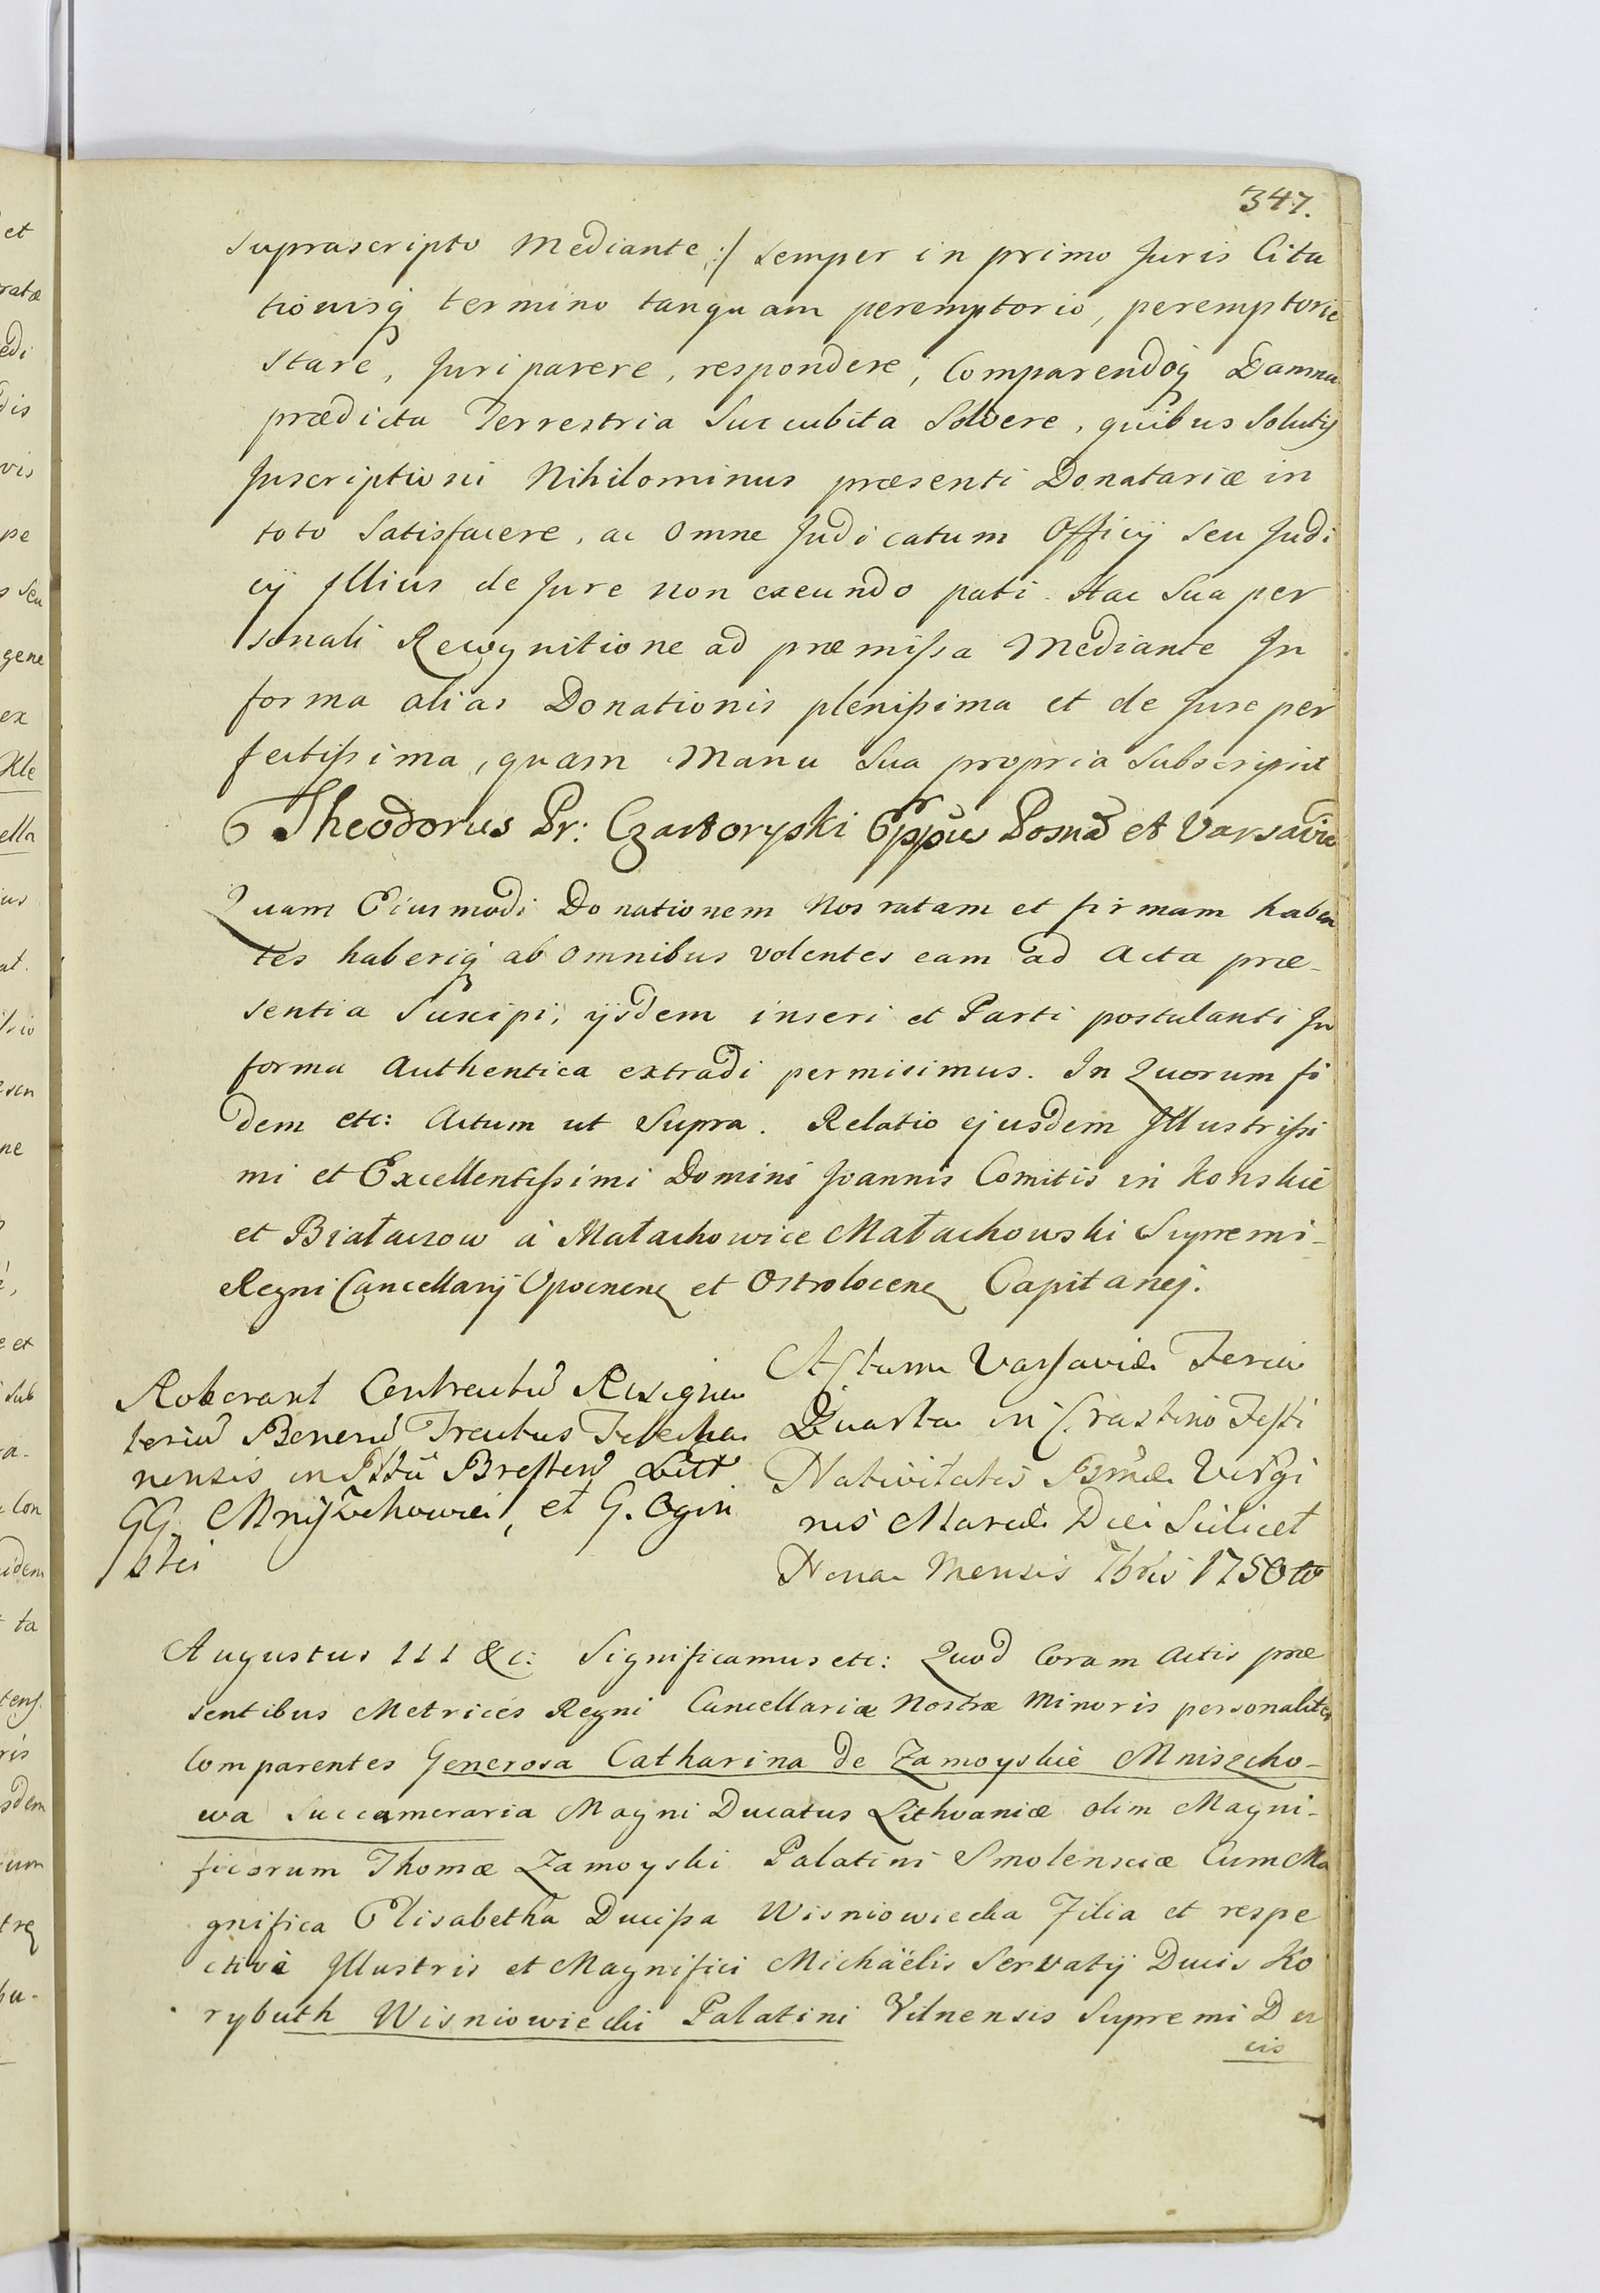 347.
suprascripto Mediante :/ semper in primo Juris Cita
tionisq termino tanquam peremptorio, peremptorie
stare, Juri parere, respondere, Comparendoq Damna
prædicta Terrestria Succubita Solvere, quibus Solutis
Inscriptioni Nihilominus præsenti Donatariæ in
toto Satisfacere, ac omne Judicatum Officij seu Judi
cij Illius de Jure non exeundo pati. Hac Sua per
sonali Recognitione ad præmissa Mediante In
forma alias Donationis plenissima et de Jure per
fectissima, quam Manu Sua propria Subscripsit
Theodorus Pr: Czartoryski Eppus Posna et Varsavie
Quam Eiusmodi Donationem Nos ratam et firmam haben
tes haberiq ab omnibus volentes eam ad Acta præ-
sentia Suscipi, ijsdem inseri et Parti postulanti In
forma Authentica extradi permisimus. In Quorum fi
dem etc: Actum ut Supra. Relatio ejusdem Illustrissi
mi et Excellentissimi Domini Joannis Comitis in Konskie
et Białaczow à Małachowice Małachowski Supremi
Regni Cancellarij Opocnenꝫ et Ostrolocenꝫ Capitanej.
Roborant Contractu Resigna
toriu Bonoru Tractus Telecha
nensis in Pttu Bresten Litt
GG. Mniszchowie, et G. Ogin
ski
Actum Varsaviæ Feria
Quarta in Crastino Festi
Nativitatis Bmæ Virgi
nis Mariæ Diei Scilicet
Nona Mensis 7bris 1750to
Augustus III &c: Significamus etc: Quod Coram Actis præ
sentibus Metrices Regni Cancellariæ Nostræ Minoris personaliter
Comparentes Generosa Catharina de Zamoyskie Mniszcho-
wa Succameraria Magni Ducatus Lithvaniæ olim Magni-
ficorum Thomæ Zamoyski Palatini Smolensciæ Cum Ma
gnifica Elisabetha Ducissa Wisniowiecka Filia et respe
ctivè Illustris et Magnifici Michäelis Servatij Ducis Ko
rybuth Wisniowiecki Palatini Vilnensis Supremi Du
cis